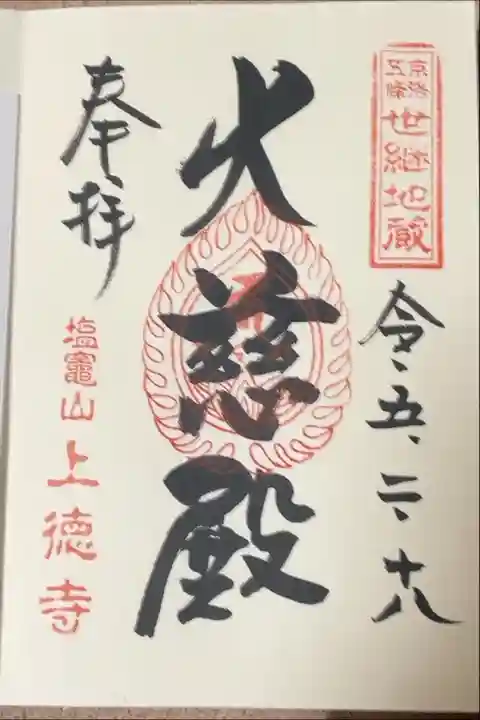 京洛五條
世継地蔵
令、五、二、十八
大慈殿
奉拝
塩竈山上徳寺